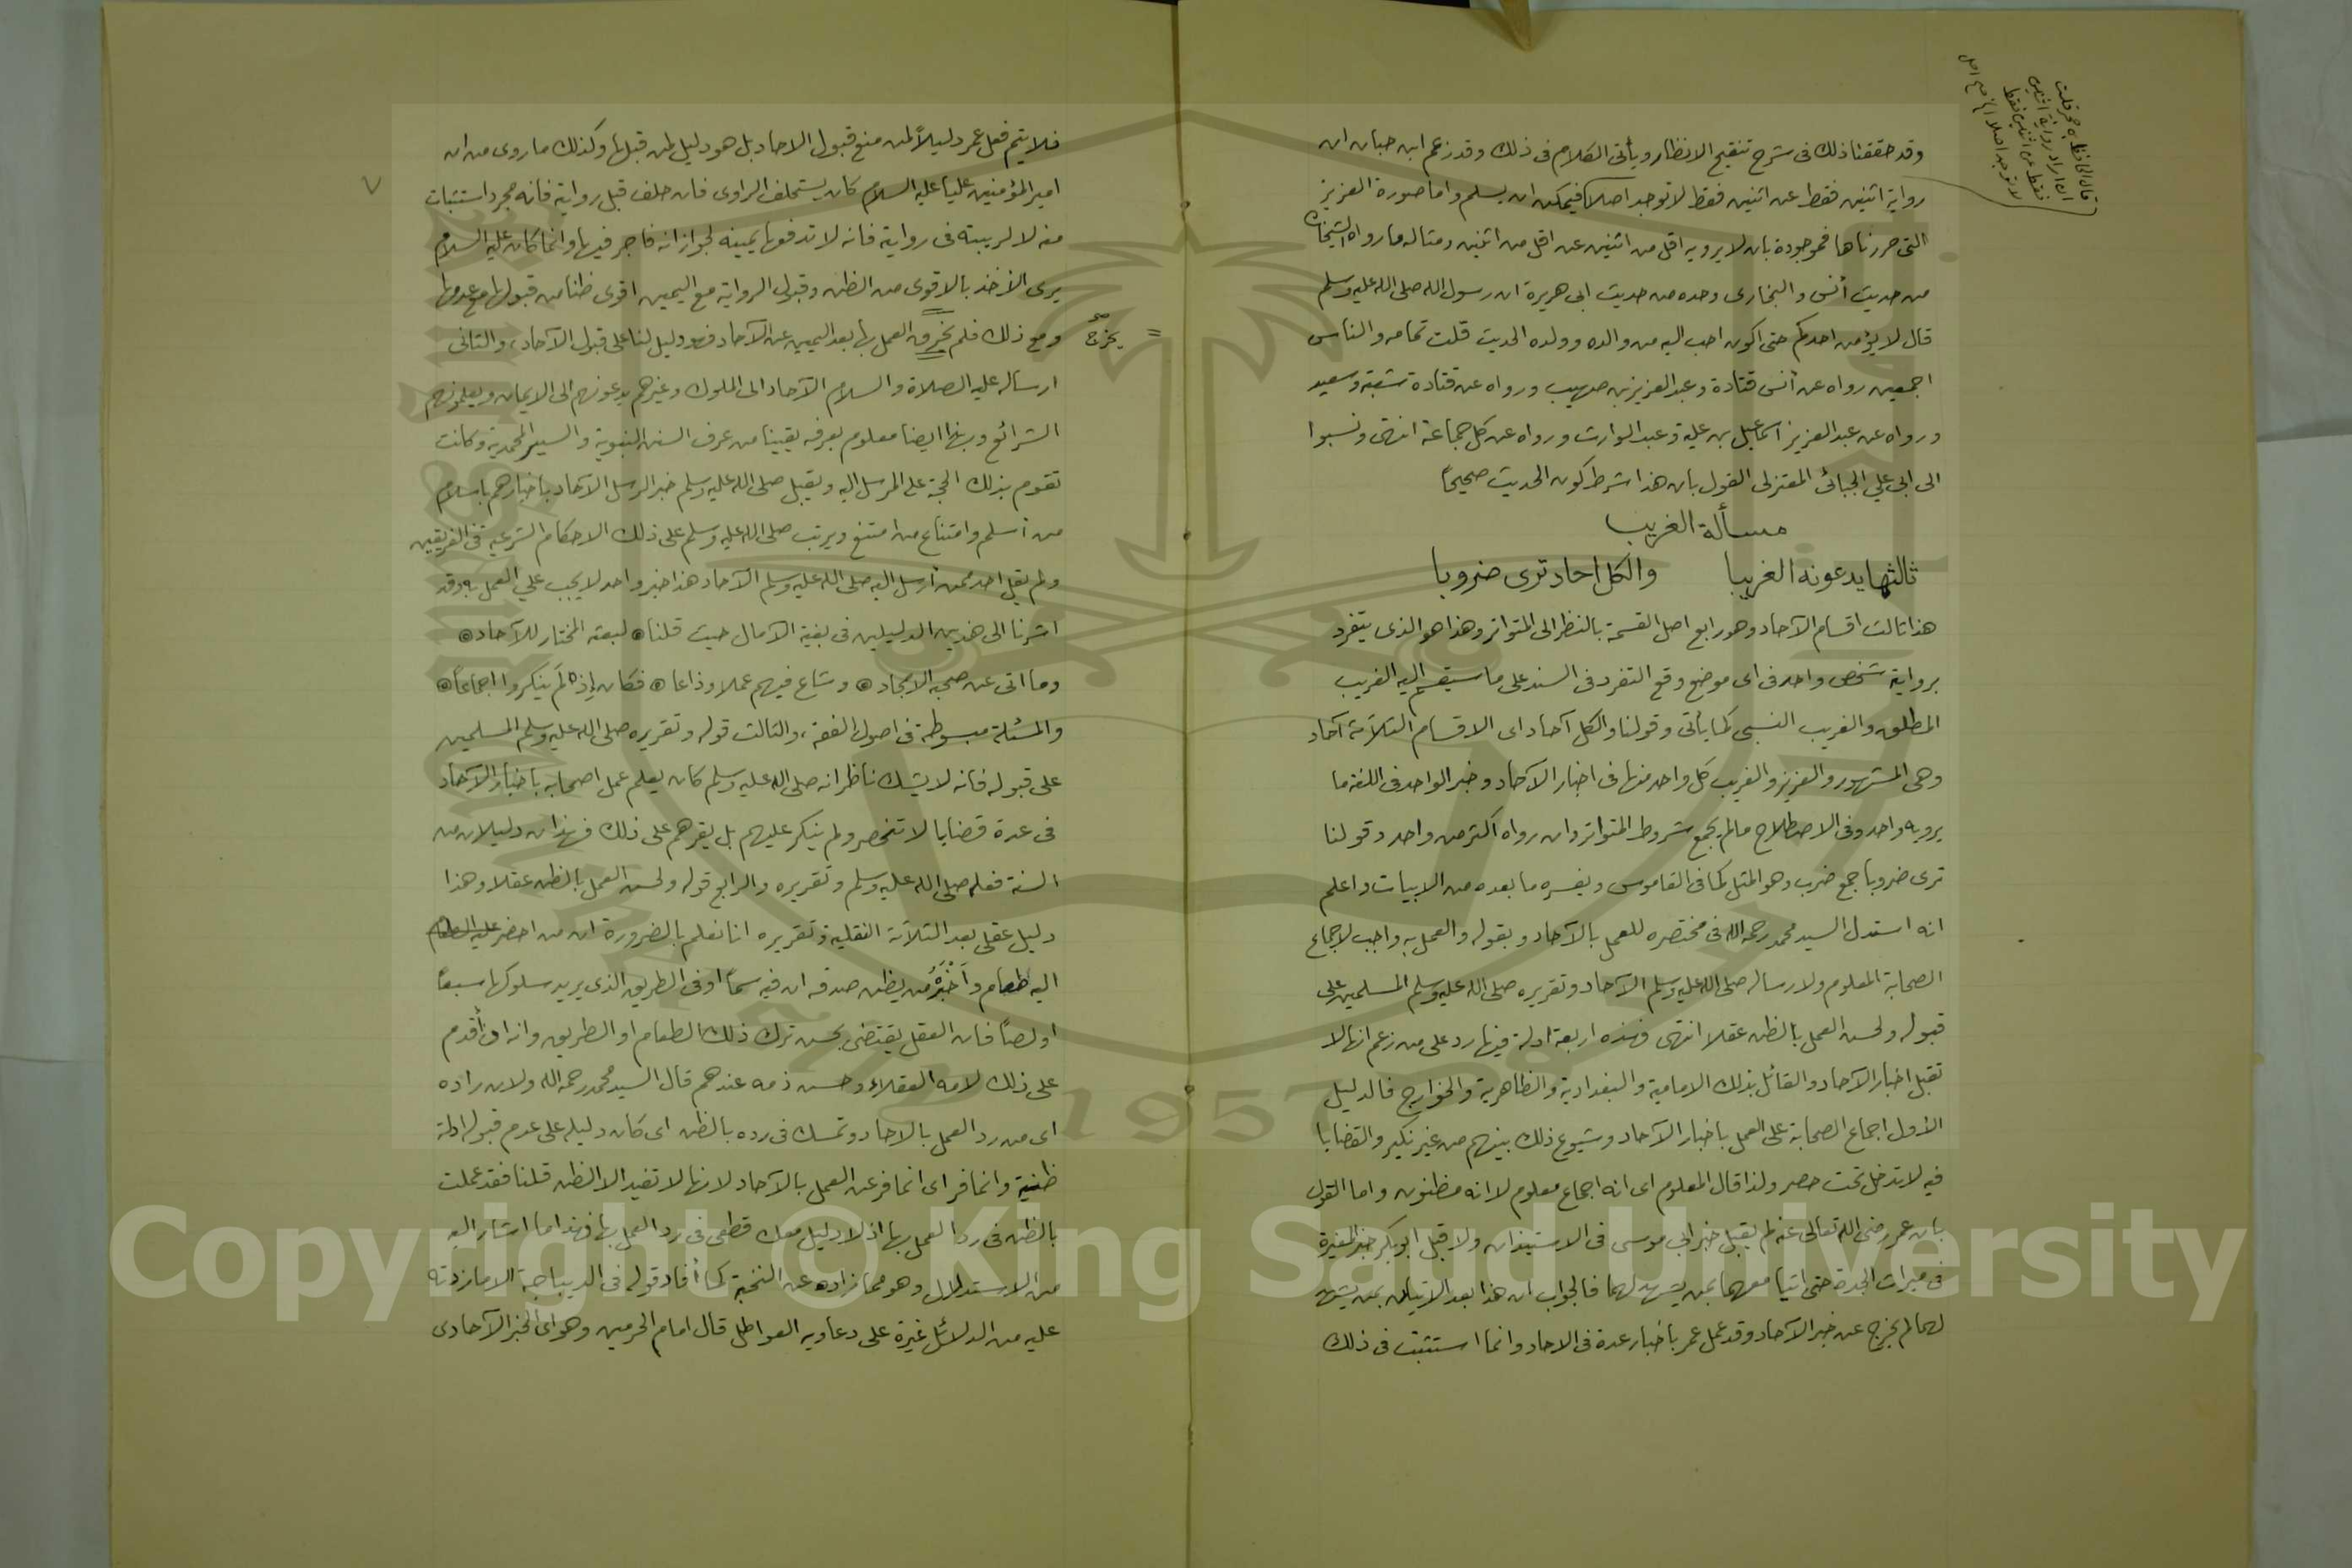 قال الحافظ ابن حجر قلت
ان اراد رواية اثنين
فقط عن اثنين فقط
لا توجد اصلا
وقد حققنا ذلك فى شرح تنقيح الانظار ويأتى الكلام فى ذلك وقد زعم ابن حبان ان
رواية اثنين فقط عن اثنين فقط لا توجد اصلا فيمكن ان يسلم واما صورة العزيز
التى حررناها فموجودة بان لا يرويه اقل من اثنين عن اقل من اثنين ومثاله ما رواه الشيخان
من حديث أنس والبخارى وحده من حديث ابى هريرة ان رسول الله صلى الله عليه وسلم
قال لا يؤمن احدكم حتى اكون احب اليه من والده وولده الحديث قلت تمامه والناس
اجمعين رواه عن أنس قتادة وعبد العزيز بن صهيب ورواه عن قتادة شعبة وسعيد
ورواه عن عبد العزيز اسماعيل بن علية وعبد الوارث ورواه عن كل جماعة انتهى ونسبوا
الى ابى علي الجبائى المعتزلى القول بأن هذا شرط كون الحديث صحيحاً
مسألة الغريب
ثالثها يدعونه الغريبا والكل احاد ترى ضروبا
هذا ثالث اقسام الآحاد وهو رابع اصل القسمة بالنظر الى المتواتر وهذا هو الذى يتفرد
برواية شخص واحد فى اى موضع وقع التفرد فى السند على ما سيقسم اليه الغريب
المطلق والغريب النسبى كما يأتى وقولنا والكل آحاد اى الاقسام الثلاثة آحاد
وهى المشهور والعزيز والغريب كل واحد منها فى اخبار الآحاد وخبر الواحد فى اللغة ما
يرويه واحد وفى الاصطلاح مالم يجمع شروط المتواتر وان رواه اكثر من واحد وقولنا
ترى ضروبا جمع ضرب وهو المثل كما فى القاموس ويفسره ما بعده من الابيات واعلم
انه استدل السيد محمد رحمه الله فى مختصره للعمل بالآحاد وبقوله والعمل به واجب لاجماع
الصحابة المعلوم ولارساله صلى الله عليه وسلم الآحاد وتقريره صلى الله عليه وسلم المسلمين على
قبوله ولحسن العمل بالظن عقلا انتهى فهذه اربعة ادلة فيها رد على من زعم انها لا
تقبل اخبار الآحاد والقائل بذلك الامامية والبغدادية والظاهرية والخوارج فالدليل
الأول اجماع الصحابة على العمل باخبار الآحاد وشيوع ذلك بينهم من غير نكير والقضايا
فيه لا تدخل تحت حصر ولذا قال المعلوم اى انه اجماع معلوم لا انه مظنون واما القول
بان عمر رضى الله تعالى عنه لم يقبل خبر ابي موسى فى الاستيذان ولا قبل ابو بكر خبر المغيرة
فى ميراث الجدة حتى اتيا معهما بمن يشهد لهما فالجواب ان هذا بعد الاتيان بمن يشهد
لهما لم يخرج عن خبر الآحاد وقد عمل عمر باخبار عدة فى الاحاد وانما استثبت فى ذلك
فلا يتم فعل عمر دليلاً لمن منع قبول الاحاد بل هو دليل لمن قبلها وكذلك ما روى من ان
امير المؤمنين علياً عليه السلام كان يستحلف الراوى فان حلف قبل روايته فانه مجرد استثبات
منه لا لريبته فى روايته فانه لا تدفعها يمينه لجواز انه فاجر فيها وانما كان عليه السلام
يرى الأخذ بالاقوى من الظن وقبول الرواية مع اليمين اقوى ظنا من قبولها مع عدمها
ومع ذلك فلم يخرج العمل بها بعد اليمين عن الآحاد فهو دليل لنا على قبول الآحاد، والثانى
يخرج
ارساله عليه الصلاة والسلام الآحاد الى الملوك وغيرهم يدعونهم الى الايمان ويعلمونهم
الشرائع وهذا ايضا معلوم يعرفه يقيناً من عرف السنن النبوية والسير المحمدية وكانت
تقوم بذلك الحجة على المرسل اليه ويقبل صلى الله عليه وسلم خبر الرسل الآحاد باخبارهم باسلام
من أسلم وامتناع من امتنع ويرتب صلى الله عليه وسلم على ذلك الاحكام الشرعية فى الفريقين
ولم يقل احد ممن أرسل اليه صلى الله عليه وسلم الآحاد هذا خبر واحد لا يجب علي العمل به وقد
اشرنا الى هذين الدليلين فى بغية الآمال حيث قلنا لبعثه المختار للآحاد
وما اتى عن صحبه الامجاد وشاع فيهم عملا وذاعا فكان إذ لم ينكروا اجماعاً
والمسئلة مبسوطة فى اصول الفقه، والثالث قوله وتقريره صلى الله عليه وسلم المسلمين
على قبوله فانه لا يشك ناظر انه صلى الله عليه وسلم كان يعلم عمل اصحابه باخبار الآحاد
فى عدة قضايا لا تنحصر ولم ينكر عليهم بل يقرهم على ذلك فهذان دليلان من
السنة فعله صلى الله عليه وسلم وتقريره والرابع قوله ولحسن العمل بالظن عقلا وهذا
دليل عقلى بعد الثلاثة النقلية وتقريره انا نعلم بالضرورة ان من احضر
اليه طعام وأخبره من يظن صدقه ان فيه سماً او فى الطريق الذى يريد سلوكها سبعاً
او لصاً فان العقل يقتضى بحسن ترك ذلك الطعام او الطريق وانه ان أقدم
على ذلك لامه العقلاء وحسن ذمه عندهم قال السيد محمد رحمه الله ولان راده
اى من رد العمل بالاحاد وتمسك فى رده بالظن اى كان دليله على عدم قبوله ادلة
ظنية وانما فر اى انما فر عن العمل بالآحاد لانها لا تفيد الا الظن قلنا فقد عملت
بالظن فى رد العمل بها اذ لا دليل معك قطعى فى رد العمل بها فهذا ما اشار اليه
من الاستدلال وهو مما زاده عن النخبة كما أفاد قوله فى الديباجة الا ما زدته
عليه من الدلائل غيرة على دعاويه العواطل قال امام الحرمين وهو اى الخبر الآحادى
٧
Copyright © King Saud University
1957